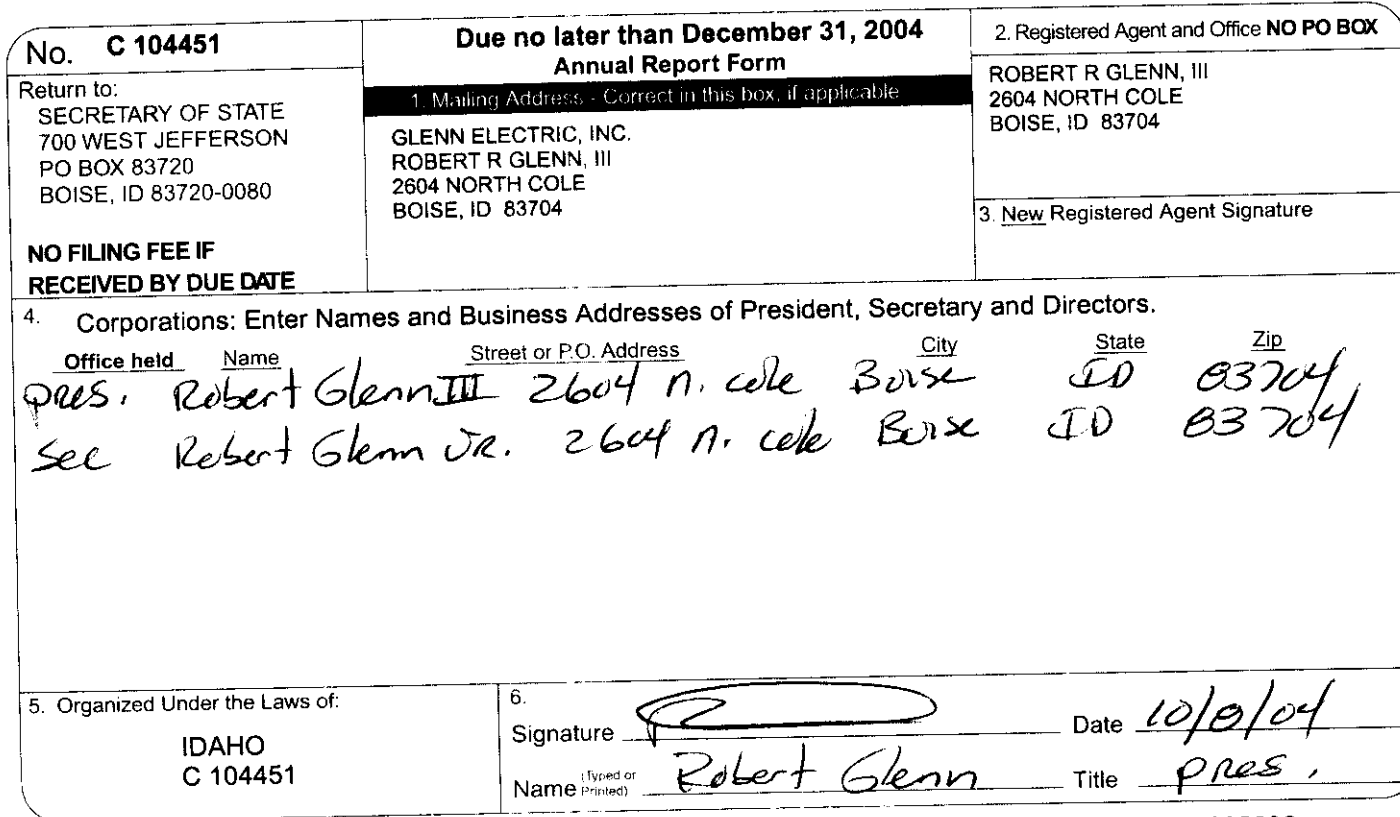 No. C 104451
Return to:
SECRETARY OF STATE
700 WEST JEFFERSON
PO BOX 83720
BOISE, ID 83720-0080
NO FILING FEE IF
RECEIVED BY DUE DATE
Due no later than December 31, 2004
Annual Report Form
1. Mailing Address - Correct in this box, if applicable
GLENN ELECTRIC, INC.
ROBERT R GLENN, III
2604 NORTH COLE
BOISE, ID 83704
2. Registered Agent and Office NO PO BOX
ROBERT R GLENN, III
2604 NORTH COLE
BOISE, ID 83704
3. New Registered Agent Signature
4. Corporations: Enter Names and Business Addresses of President, Secretary and Directors.
Office held Name Street or P.O. Address City State Zip
pres. Robert Glenn III 2604 n. cole Boise ID 83704
Sec Robert Glenn JR. 2604 n. cole Boise ID 83704
5. Organized Under the Laws of:
IDAHO
C 104451
6.
Signature Date 10/8/04
Name (Typed or Printed) Robert Glenn Title pres.